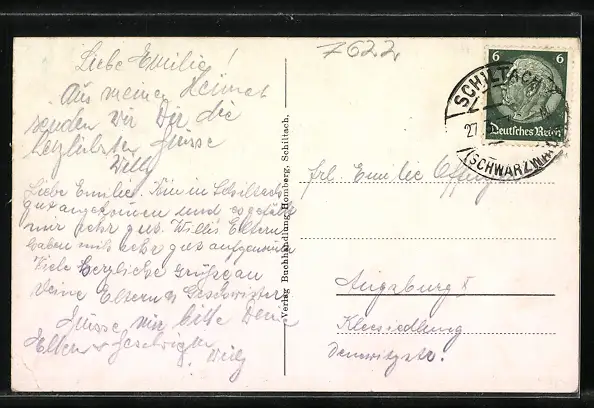 Liebe Emilie!
Aus meiner Heimat
senden wir Dir die
herzlichsten Grüsse
Willy
Liebe Emilie. Bin in Schiltach
gut angekommen und es gefällt
mir sehr gut. Willis Eltern
haben mich sehr gut aufgenommen
Viele herzliche Grüsse an
Deine Eltern u. Geschwister
Grüsse mir bitte Deine
Eltern u. Geschwister
Willy
Verlag Buchhandlung Homberg, Schiltach.
7622
SCHILTACH
27
(SCHWARZWA
6 6
Deutsches Reich
Frl. Emilie
Augsburg
Kleesiedlung